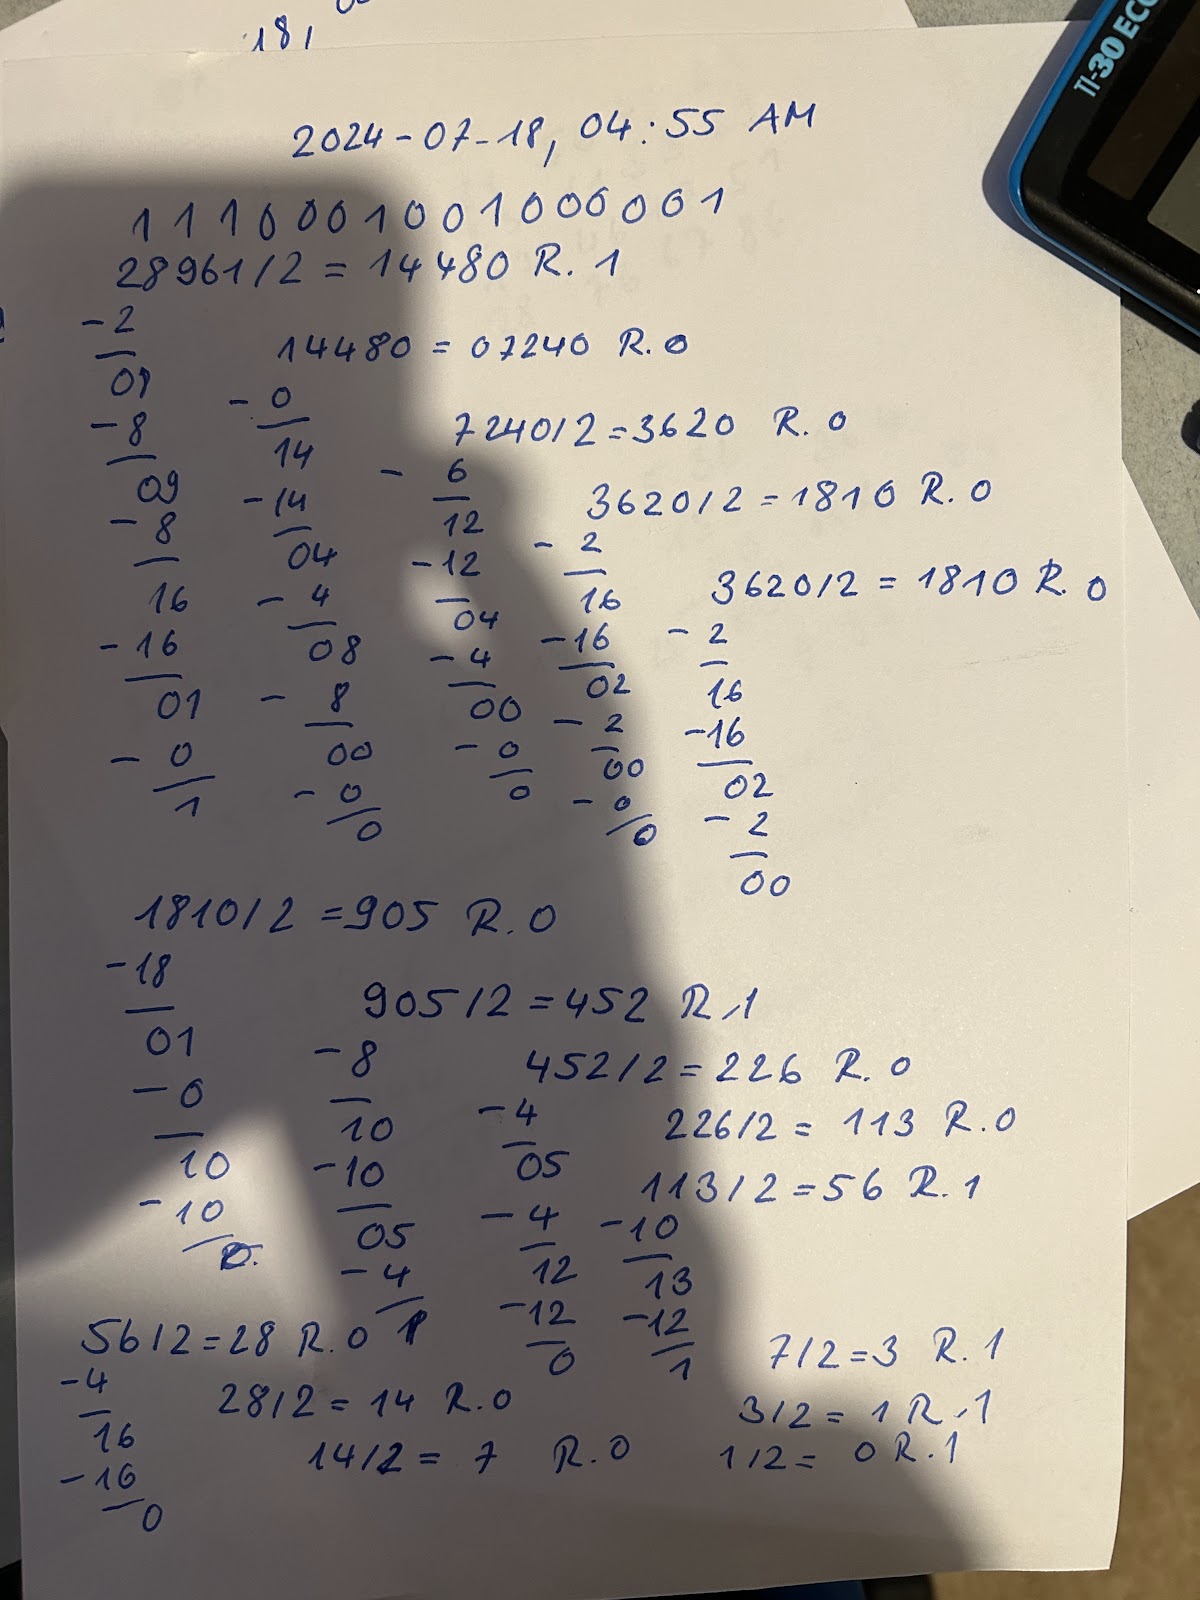 181
TI-30 ECO
2024-07-18, 04:55 AM
1110001001000001
28961/2 = 14480 R. 1
-2
01
-8
09
-8
16
-16
01
-0
1
14480 = 07240 R. 0
-0
14
-14
04
-4
08
-8
00
-0
0
7240/2=3620 R. 0
-6
12
-12
04
-4
00
-0
0
3620/2=1810 R. 0
-2
16
-16
02
-2
00
-0
0
3620/2 = 1810 R. 0
-2
16
-16
02
-2
00
1810/2 =905 R. 0
-18
01
-0
10
-10
0.
905/2 =452 R.1
-8
10
-10
05
-4
1
452/2=226 R. 0
-4
05
-4
12
-12
0
226/2= 113 R.0
113/2=56 R.1
-10
13
-12
1
56/2=28 R.0
-4
16
-16
0
28/2= 14 R.0
14/2= 7 R.0
7/2=3 R.1
3/2= 1 R.1
1/2= 0 R.1